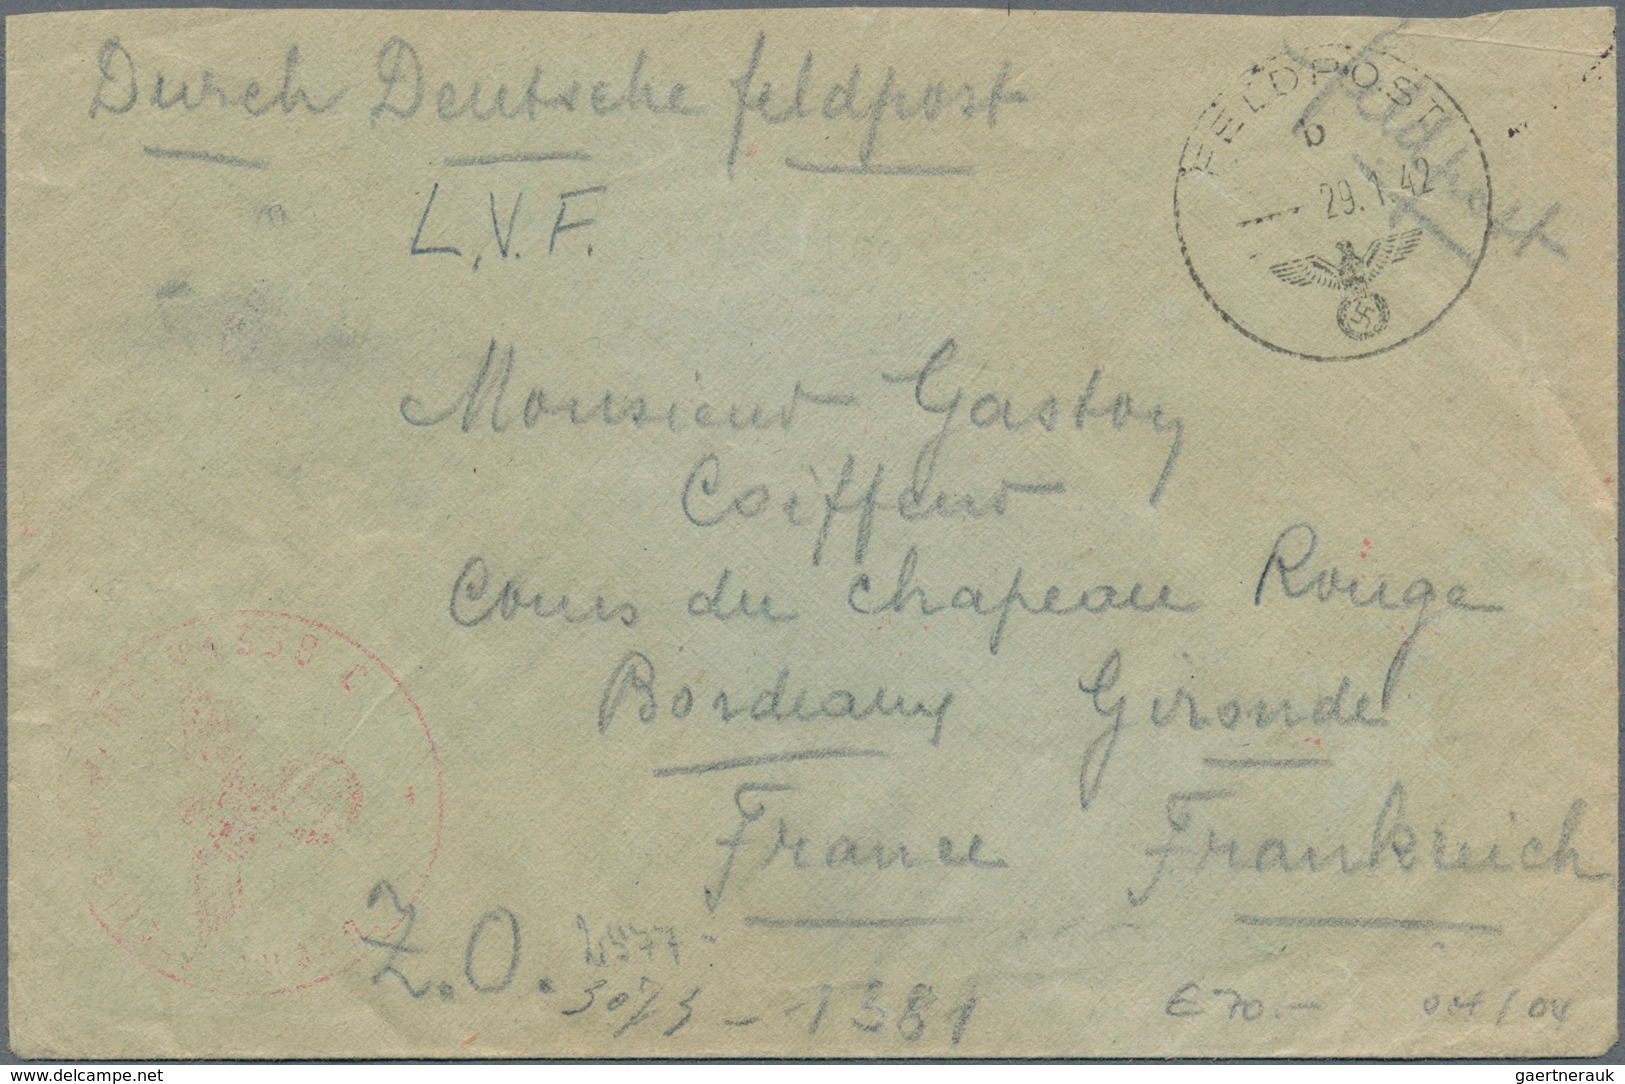 Durch Deutsche feldpost
L.V.F.
FELDPOST
b
29.1.42
Feldpost
Monsieur Gaston
Coiffeur
Cours du chapeau Rouge
Bordeaux Gironde
France Frankreich
Z.O.
3073 - 1381
€70.-
gaertnerauk
www.delcampe.net